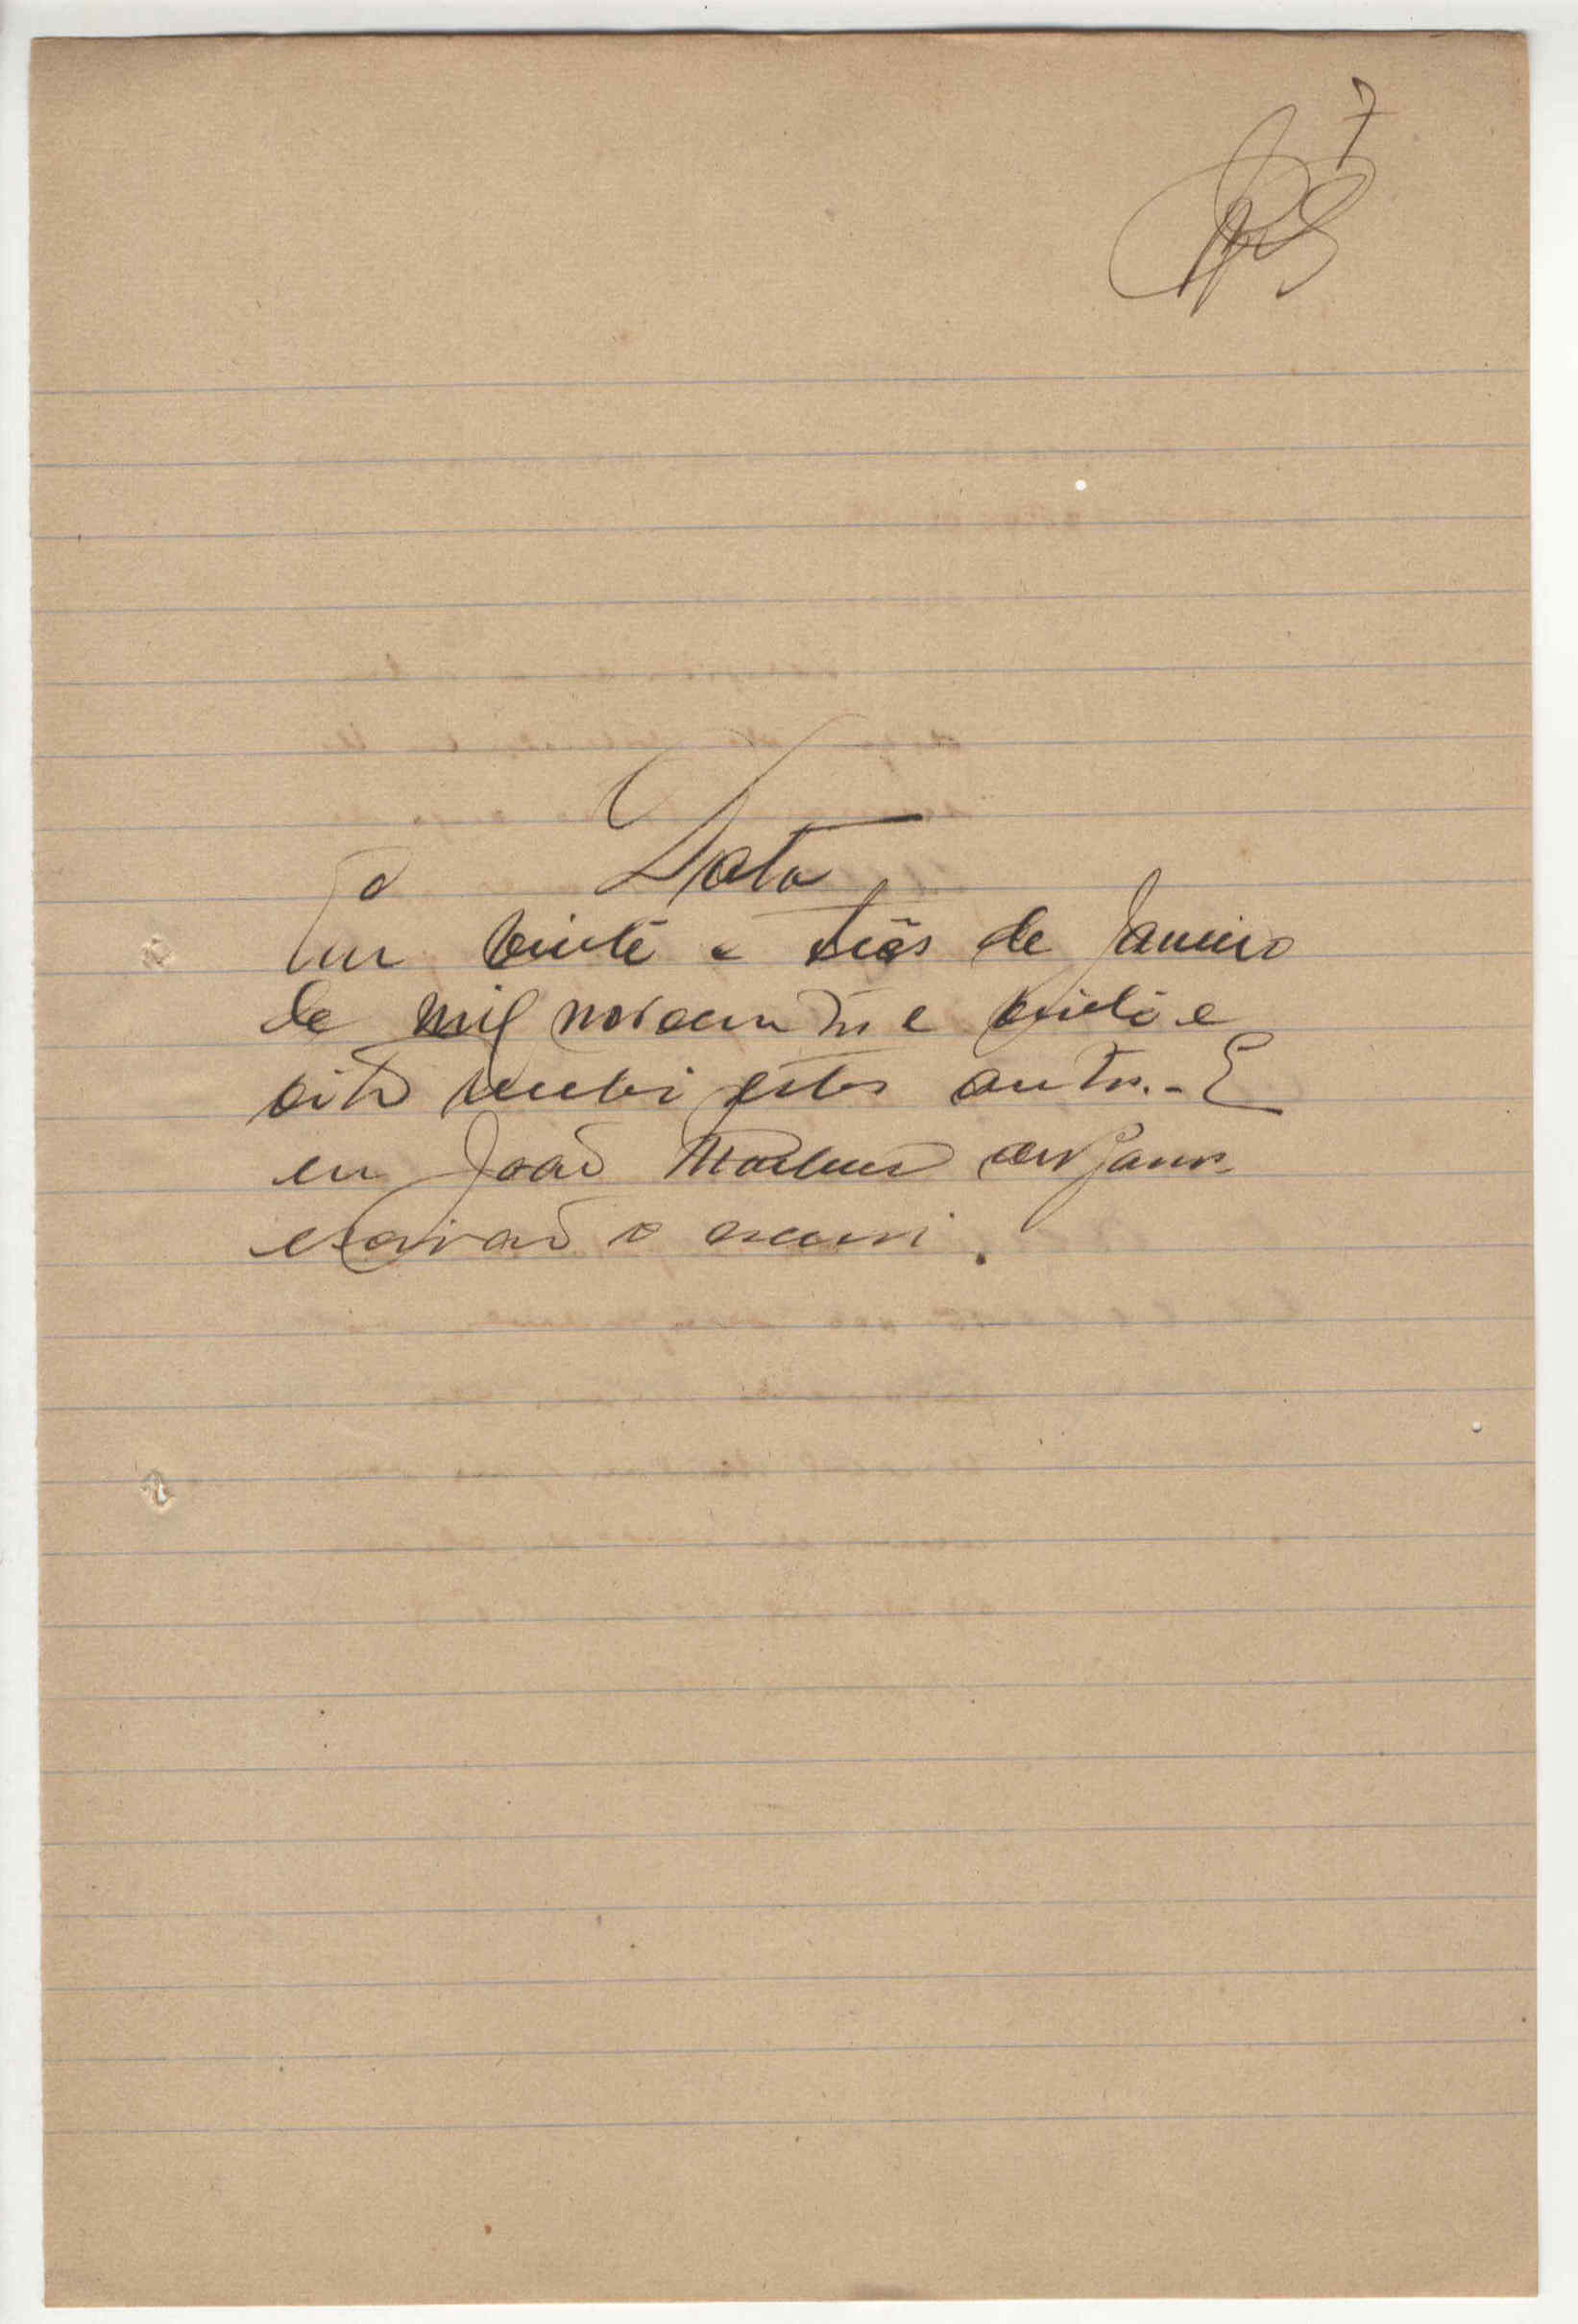 7
Data
Em vinte e três de Janeiro
de mil novecentos e vinte e
oito recebi estes autos.- E
eu João Martins dos Panos
escrivão o escrevi.